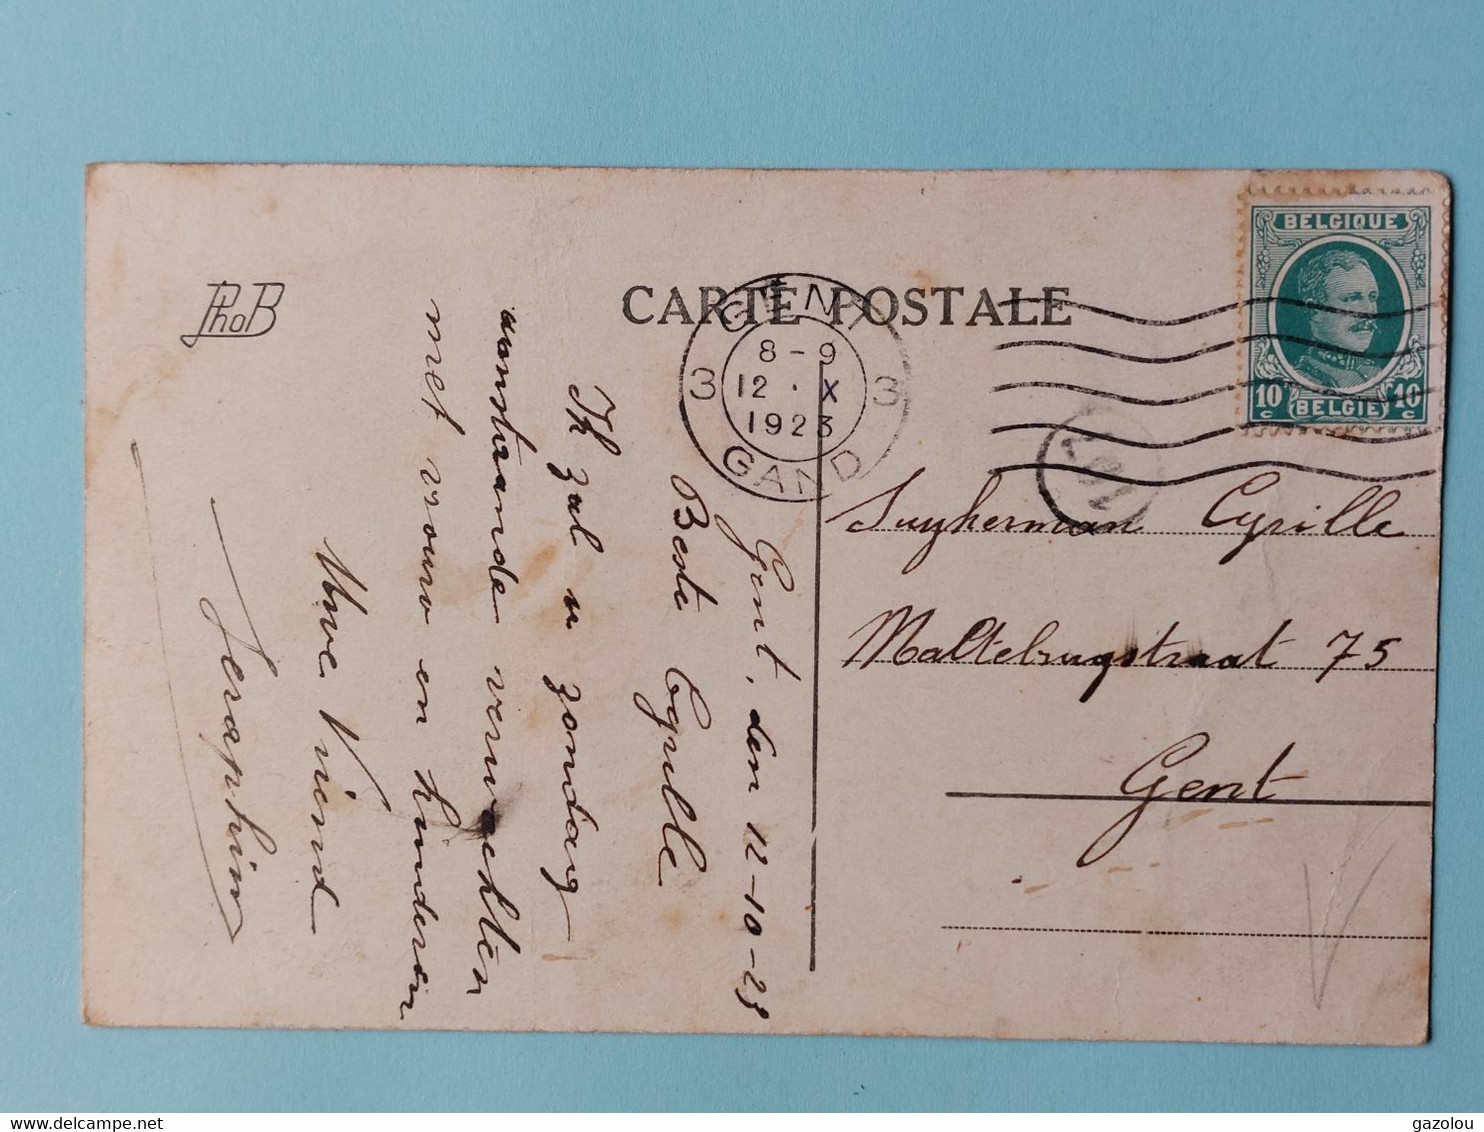 PhoB
CARTE POSTALE
GENT
8-9
3 12 · X 3
1923
GAND
BELGIQUE
10 c BELGIË 10 c
Gent, den 12-10-23
Beste Cyrille
Ik zal u zondag
aanstaande verwachten
met vrouw en kinderen
Uwe Vriend
Seraphim
Suykerman Cyrille
Maltebrugstraat 75
Gent
delcampe.net
gazolou